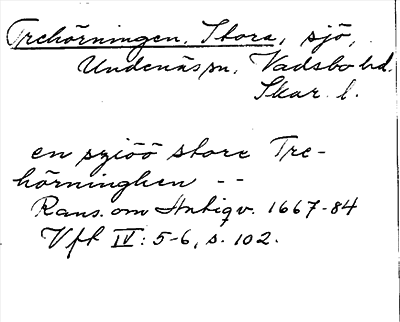 Trehörningen, Stora, sjö,
Undenäs sn, Vadsbo hd.
Skar. l.
en sziöö store Tre-
hörninghen - -
Rans. om Antiqv. 1667-84
Vfl IV: 5-6, s. 102.